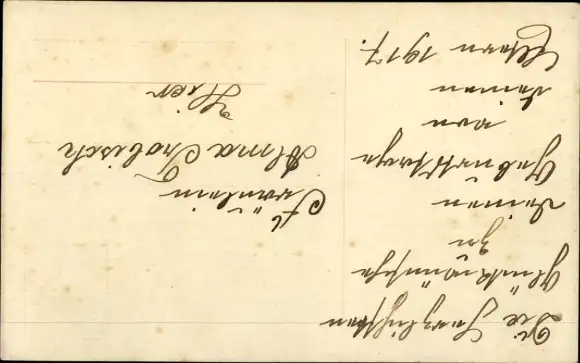 Die herzlichsten
Glückwünsche
zu
deinem
Geburtstage
von
deinen
Eltern 1917.
Fräulein
Alma Drobisch
Hier